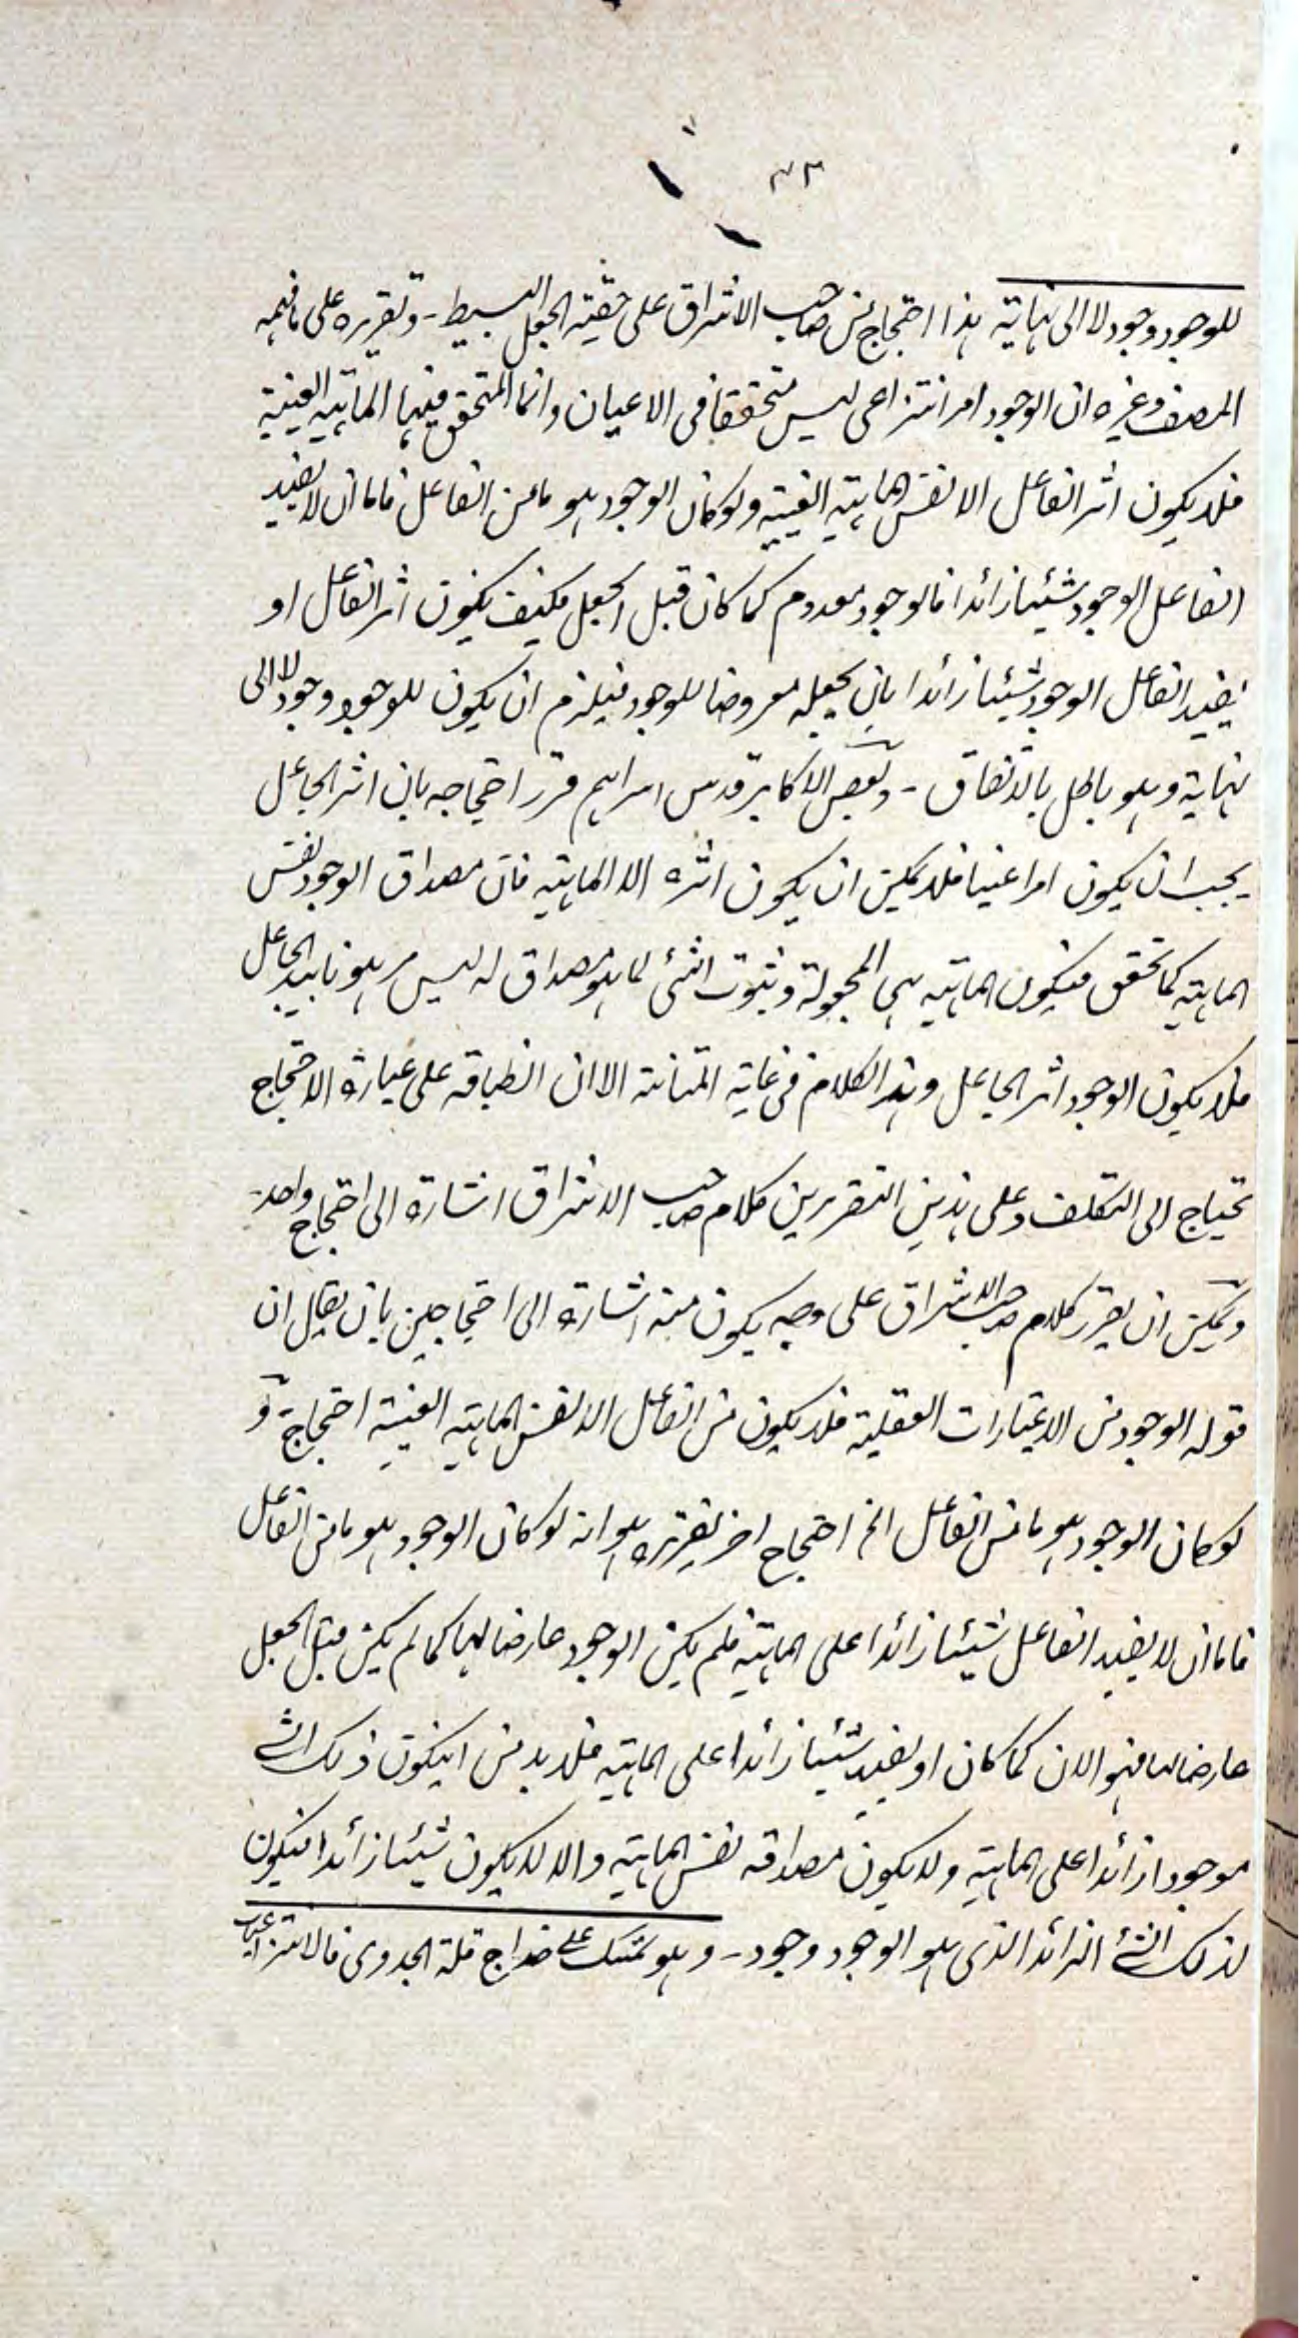 ٣٣
للوجود وجود لا الى نهاية هذا احتجاج من صاحب الاشراق على حقية الجعل البسيط - وتقريره على ما فهمه
المصنف وغيره ان الوجود امر انتزاعى ليس متحققا فى الاعيان وانما المتحقق فيها الماهية العينية
فلا يكون اثر الفاعل الا نفس الماهية العينية ولو كان الوجود هو ما من الفاعل فاما ان لا يفيد
الفاعل الوجود شيئا زائدا فالوجود معدوم كما كان قبل الجعل فكيف يكون اثر الفاعل او
يفيد الفاعل الوجود شيئا زائدا بان يجعله معروضا للوجود فيلزم ان يكون للوجود وجود لا الى
نهاية وهو باطل بالاتفاق - وبعض الاكابر قدس اسرارهم قرر احتجاجه بان اثر الجاعل
يجب ان يكون امرا عينيا فلا يمكن ان يكون اثره الا الماهية فان مصداق الوجود نفس
الماهية كما تحقق فيكون الماهية هى المجعولة وثبوت الشئ لما هو مصداق له ليس هو بتاثير الجاعل
فلا يكون الوجود اثر الجاعل وهذا الكلام فى غاية المتانة الا ان انطباقه على عبارة الاحتجاج
تحتاج الى التكلف وعلى هذين التقريرين كلام صاحب الاشراق اشارة الى احتجاج واحد
ويمكن ان يقرر كلام صاحب الاشراق على وجه يكون فيه اشارة الى احتجاجين بان يقال ان
قوله الوجود من الاعتبارات العقلية فلا يكون من الفاعل الا نفس الماهية العينية احتجاج و
لو كان الوجود هو ما من الفاعل الخ احتجاج اخر تقريره هو انه لو كان الوجود هو ما من الفاعل
فاما ان لا يفيد الفاعل شيئا زائدا على الماهية فلم يكن الوجود عارضا لها كما لم يكن قبل الجعل
عارضا لها فهو الان كما كان او يفيد شيئا زائدا على الماهية فلا بد من ان يكون ذلك الشئ
موجودا زائدا على الماهية ولا يكون مصداقه نفس الماهية والا لا يكون شيئا زائدا فيكون
لذلك الشئ الزائد الذى هو الوجود وجود - وهو كتمسك على ضراج قلة الجدوى فالانتزاعيات